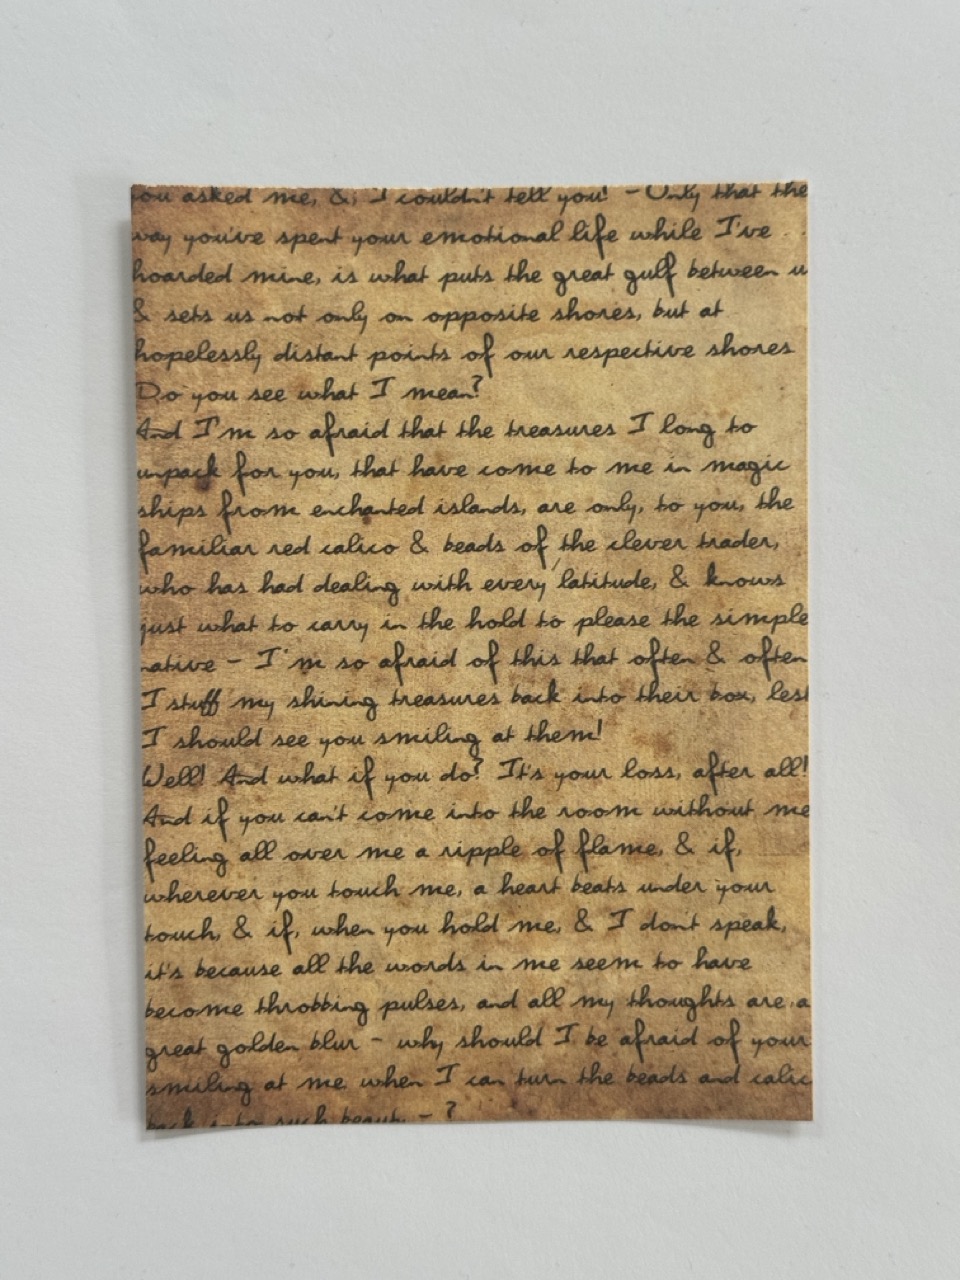 you asked me, &, I couldn't tell you! - Only that the
way you've spent your emotional life while I've
hoarded mine, is what puts the great gulf between u
& sets us not only on opposite shores, but at
hopelessly distant points of our respective shores
Do you see what I mean?
And I'm so afraid that the treasures I long to
unpack for you, that have come to me in magic
ships from enchanted islands, are only, to you, the
familiar red calico & beads of the clever trader,
who has had dealing with every latitude, & knows
just what to carry in the hold to please the simple
native - I'm so afraid of this that often & often
I stuff my shining treasures back into their box, lest
I should see you smiling at them!
Well! And what if you do? It's your loss, after all!
And if you can't come into the room without me
feeling all over me a ripple of flame, & if,
wherever you touch me, a heart beats under your
touch, & if, when you hold me, & I don't speak,
it's because all the words in me seem to have
become throbbing pulses, and all my thoughts are a
great golden blur - why should I be afraid of your
smiling at me when I can turn the beads and calic
back into such beauty - ?